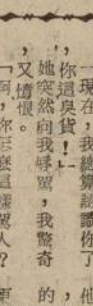 一現在，我總算認識你了，
你這臭貨！」
她突然向我辱罵，我驚奇的
，又憤恨。
「啊，你怎麼這樣罵人？